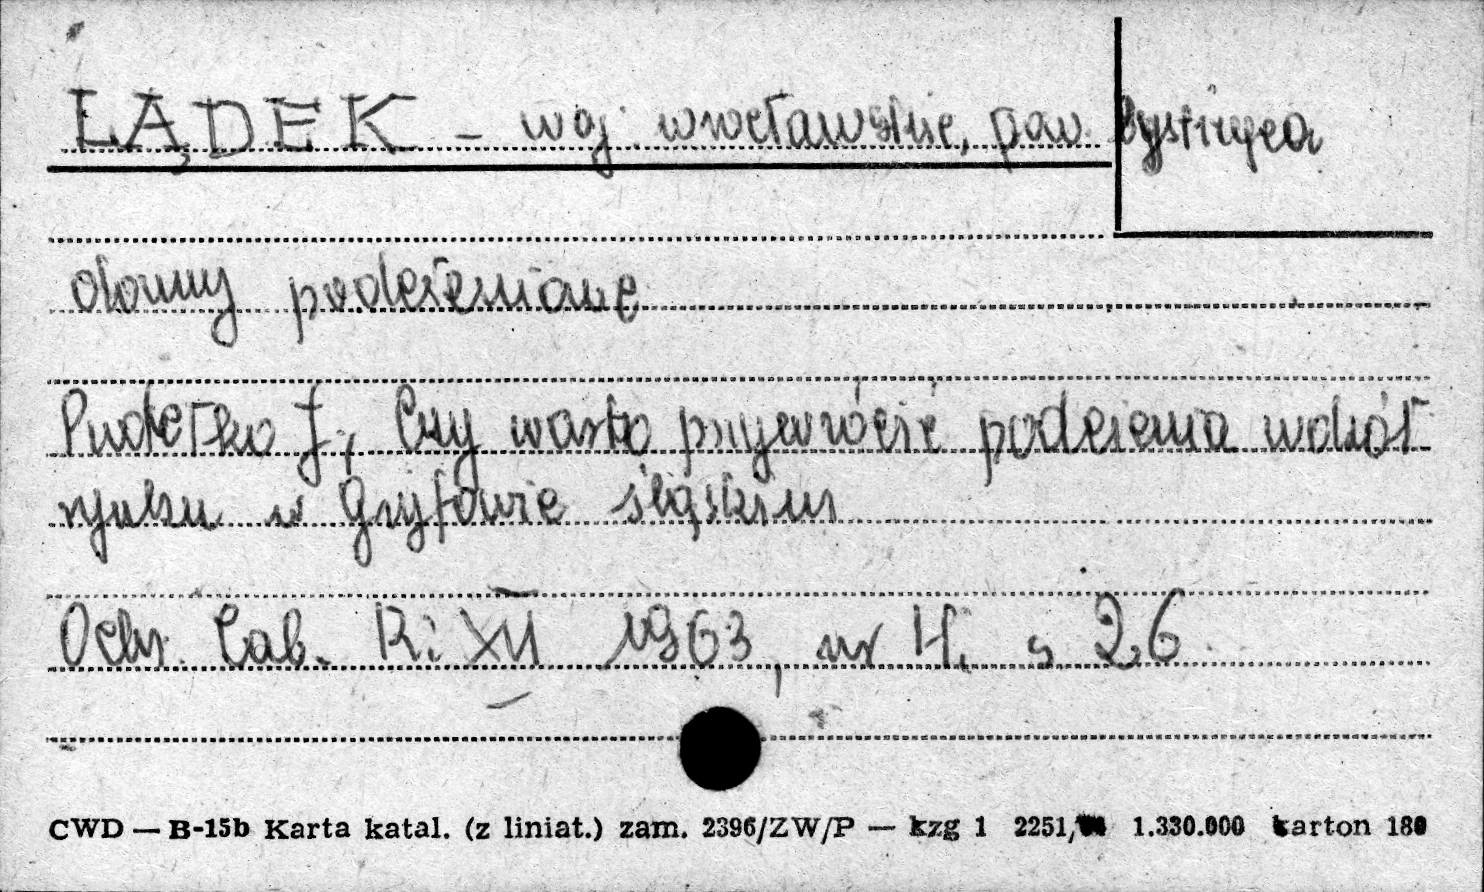 LĄDEK – woj. wrocławskie, pow. bystrzyca
domy podcieniowe
Pudełko J., Czy warto przywrócić podcienia wokół
rynku w Gryfowie śląskim
Ochr. Zab. R: XVI 1963, nr 4, s 26
CWD — B-15b Karta katal. (z liniat.) zam. 2396/ZW/P — kzg 1 2251, 1.330.000 karton 180